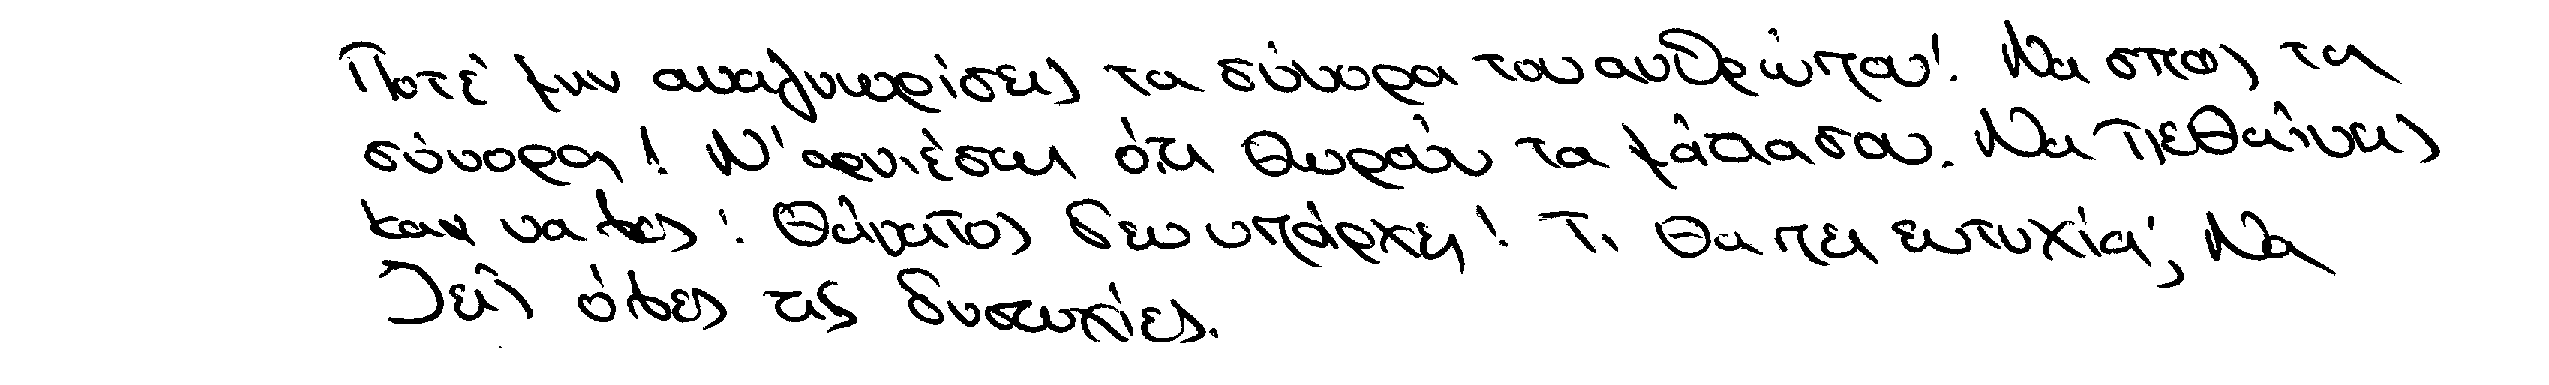 Ποτέ μην αναγνωρίσεις τα σύνορα του ανθρώπου! Να σπας τα
σύνορα! Ν' αρνιέσαι ό,τι θωρούν τα μάτια σου. Να πεθαίνεις
και να λες: Θάνατος δεν υπάρχει! Τι θα πει ευτυχία; Να
ζεις όλες τις δυστυχίες.